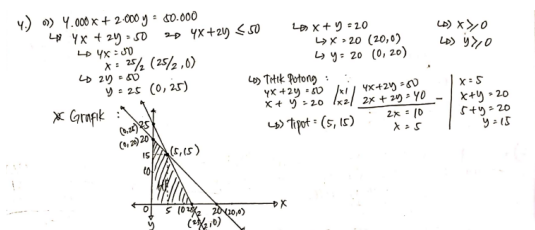 4.) a) 4.000x + 2.000y = 50.000
↳ 4x + 2y = 50 ⇒ 4x + 2y ≤ 50
↳ 4x = 50
x = 25/2 (25/2, 0)
↳ 2y = 50
y = 25 (0, 25)
↳ x + y = 20
↳ x = 20 (20,0)
↳ y = 20 (0, 20)
↳ x ≥ 0
↳ y ≥ 0
↳ Titik Potong :
4x + 2y = 50 |x1| 4x + 2y = 50
x + y = 20 |x2| 2x + 2y = 40 -
2x = 10
x = 5
↳ Tipot = (5, 15)
x = 5
x + y = 20
5 + y = 20
y = 15
* Grafik :
(0,25) 25
(0,20) 20
15 (5,15)
10
HP
0 5 10 25/2 20 (20,0) x
y (25/2, 0)